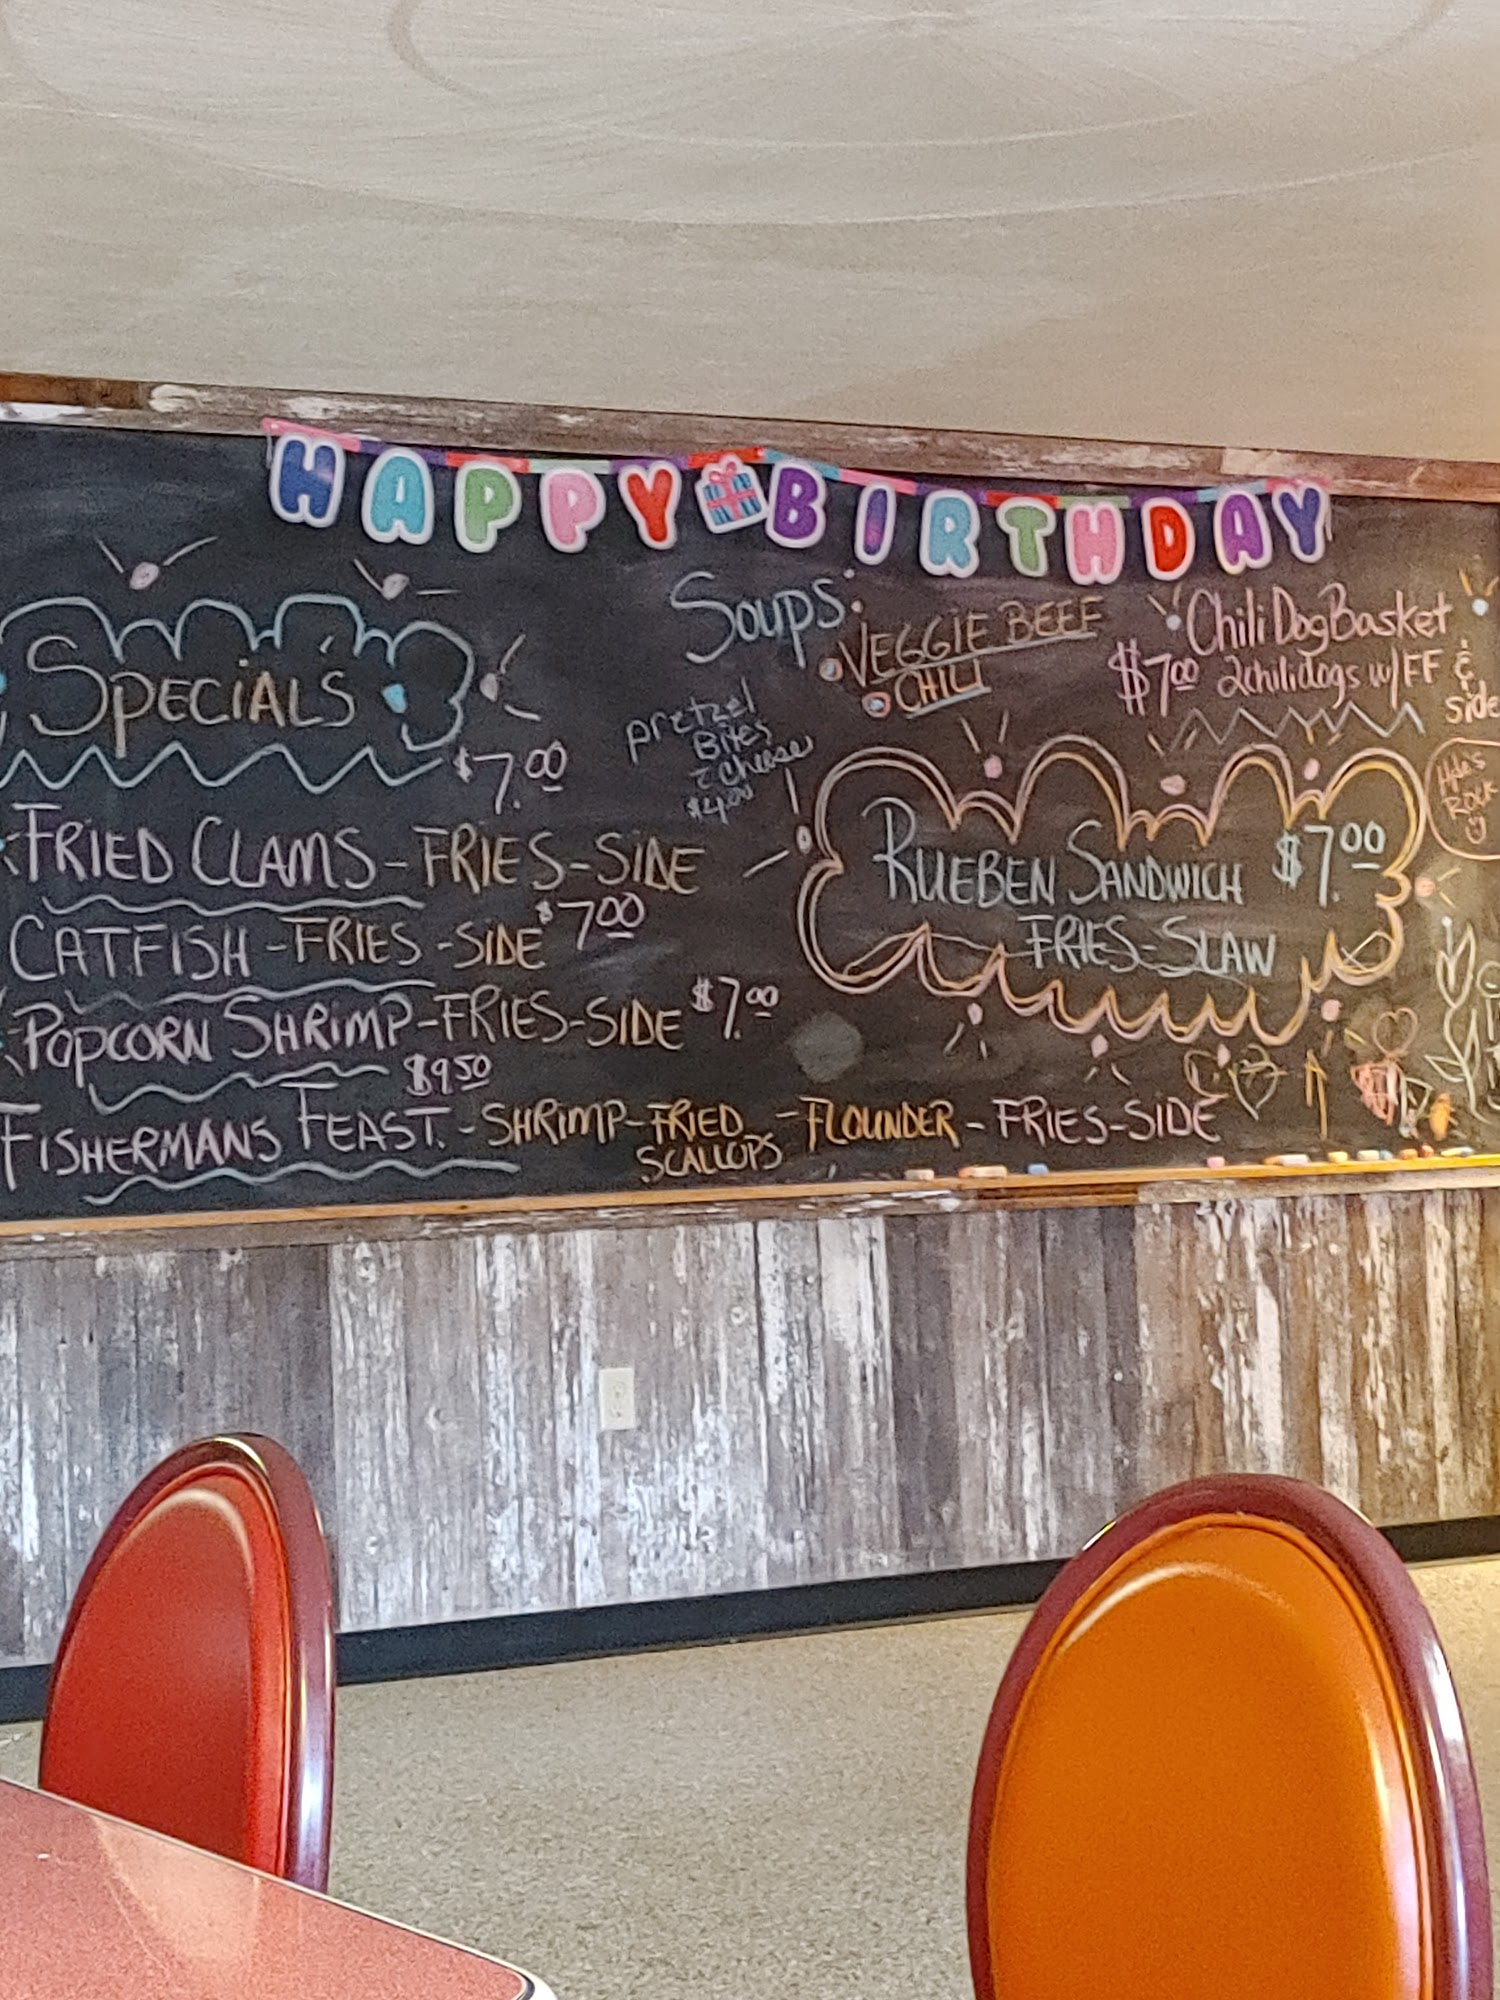 HAPPY BIRTHDAY
SPECIALS
$7.00
FRIED CLAMS-FRIES-SIDE
CATFISH-FRIES-SIDE $7.00
POPCORN SHRIMP-FRIES-SIDE $7.00
$9.50
FISHERMANS FEAST.-SHRIMP-FRIED SCALLOPS-FLOUNDER-FRIES-SIDE
Soups:
VEGGIE BEEF
CHILI
pretzel
Bites
Cheese
$4.00
Chili Dog Basket
$7.00 2chilidogs w/FF &
side
RUEBEN SANDWICH $7.00
FRIES-SLAW
ROCK